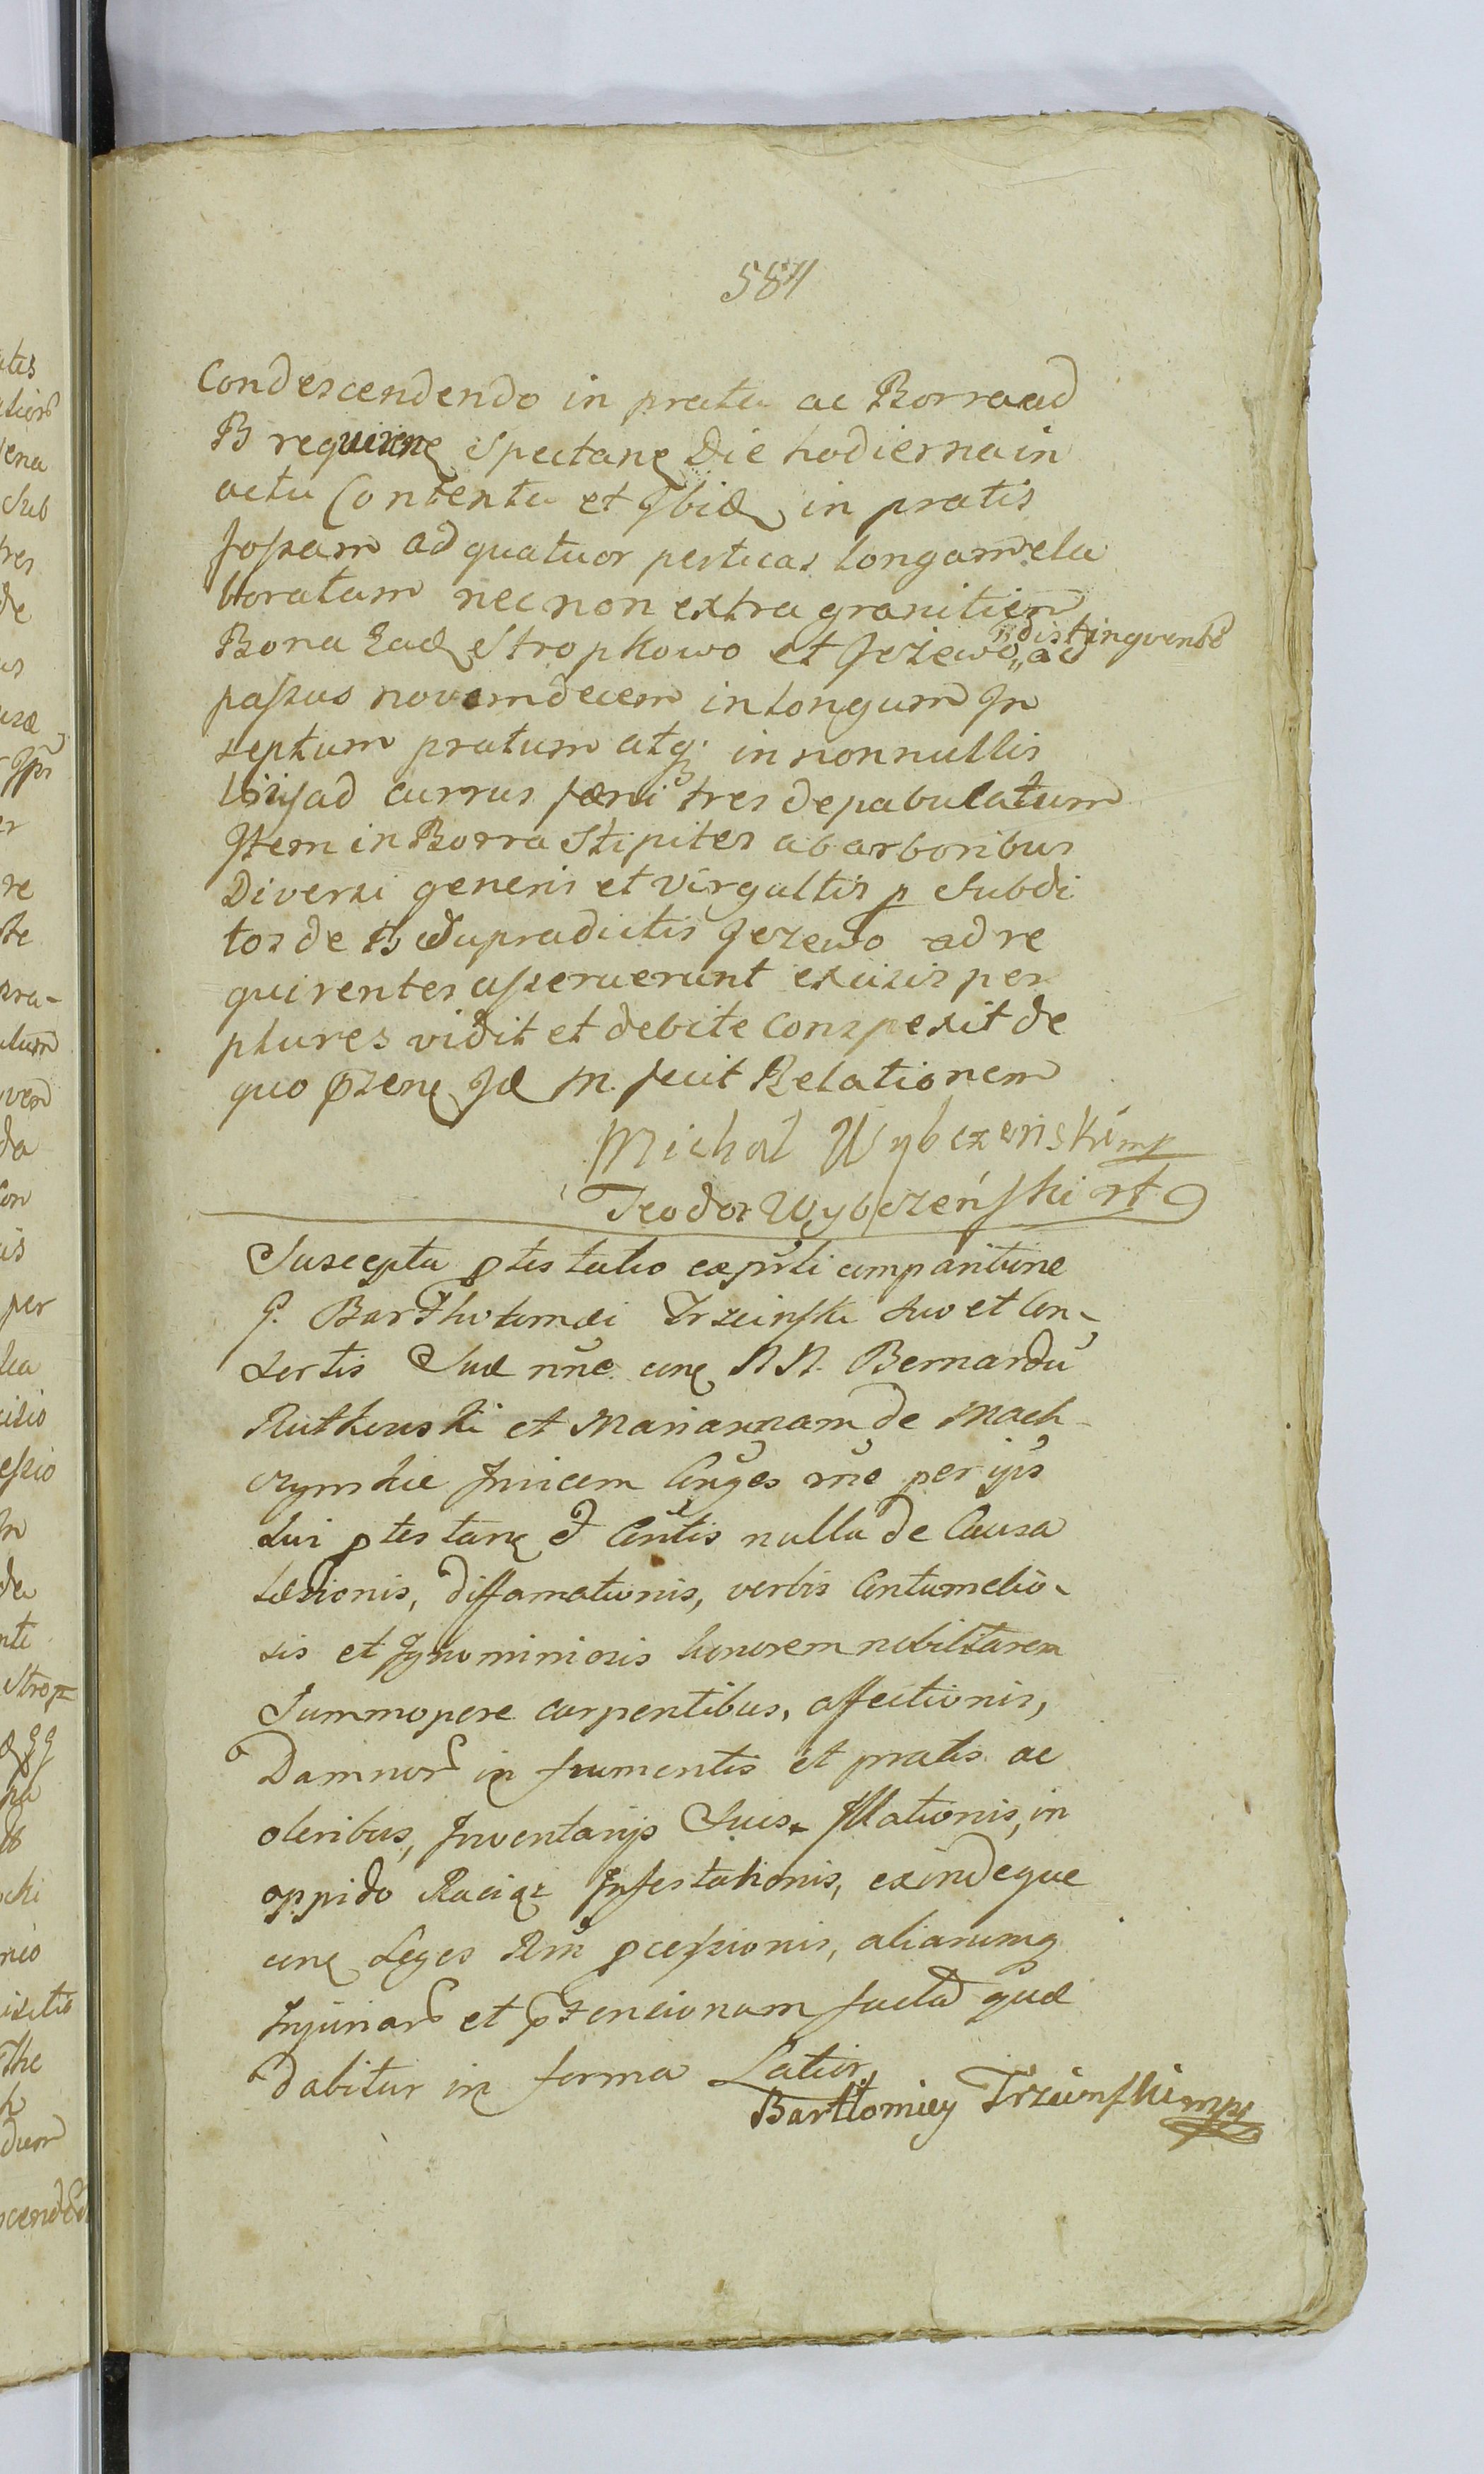 584
Condescendendo in prata ac Borra ad
B requirenẹ Spectanẹ Die hodierna in
actu Contenta et Ibid in pratis
fossam ad quatuor perticas longam ela
boratam nec non extra granitiem
Bona Ead Stropkowo et Jeżewo „ ad
„distingvente
passus novemdecem in longum In
septum pratum atq; in nonnullis
ad currus fæni tres depabulatum
Item in Borra Stipites ab arboribus
Diversi generis et virgultis p Subdi
tos de B Supradictis Jezewo ad re
quirentes asseruerunt excisis per
plures vidit et debite Conspexit de
quo Id M. fecit Relationem
Michał Wybczenski mp
Teodor Wybczeński
Suscepta ptestatio ad
G. Bartholomæi Trzcinski suo et Con-
sortis Suæ nñe N N. Bernardũ
Rutkowski et Mariannam de Mach-
czynskie Invicem Conges nñe per ijs
Sui ptestanẹ et nulla de Causa
Læsionis, diffamationis, verbis Contumelio-
sis et Ignominiosis honorem nobilitarem
Summopere carpentibus, affectionis,
Damnor in frumentis et pratis ac
oleribus, Inventarijs Suis Illationis, in
oppido Raciąż Infestationis, exindeque
Leges pcessionis, aliarumq
Injuriar et facta quæ
Dabitur in forma Latior
Bartłomiey Trzcinski mpp